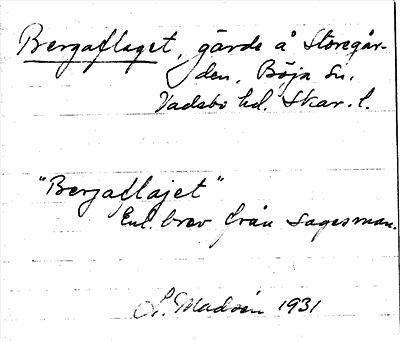 Bergaflaget, gärde å Storegår-
den, Böja sn.
Vadsbo hd. Skar. l.
"Berjaflajet"
Enl. brev från sagesman.
L. Madsén 1931